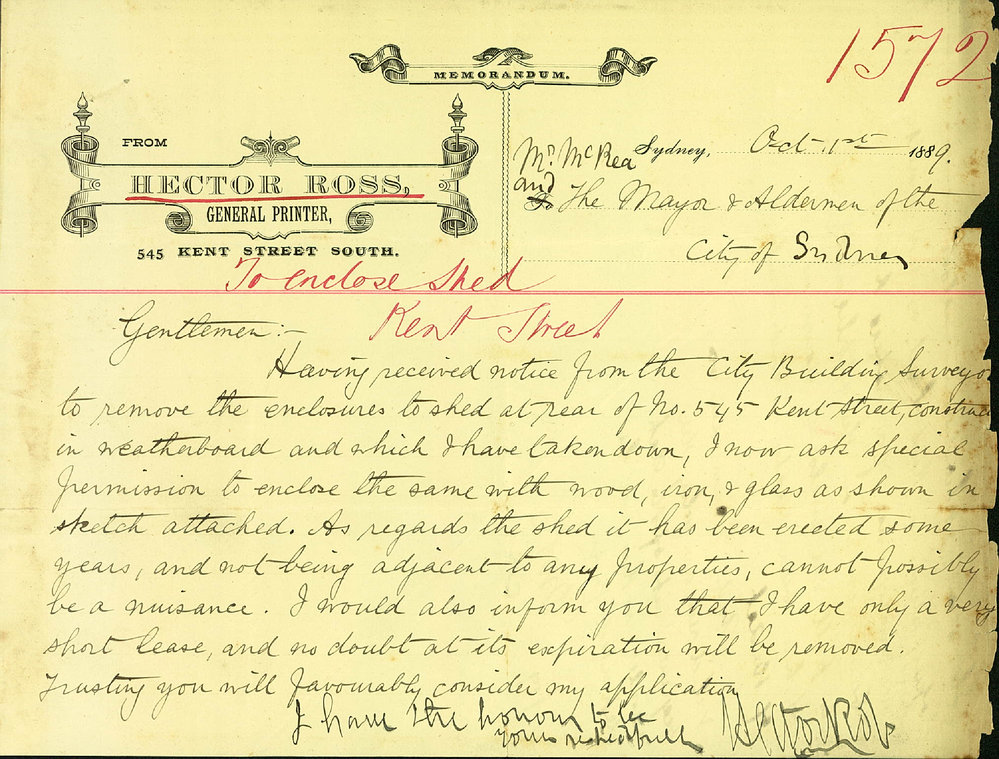 1572
MEMORANDUM.
FROM
HECTOR ROSS,
GENERAL PRINTER,
545 KENT STREET SOUTH.
Sydney, Oct. 1st 1889.
Mr. McRea
and
To The Mayor & Aldermen of the
City of Sydney
To enclose shed
Kent Street
Gentlemen:-
Having received notice from the City Building Surveyo
to remove the enclosures to shed at rear of No. 545 Kent Street, construc
in weatherboard and which I have taken down, I now ask special
permission to enclose the same with wood, iron, & glass as shown in
sketch attached. As regards the shed it has been erected some
years, and not being adjacent to any properties, cannot possibly
be a nuisance. I would also inform you that I have only a very
short lease, and no doubt at its expiration will be removed.
Trusting you will favourably consider my application
I have the honour to be
yours respectfully
Hector Ross